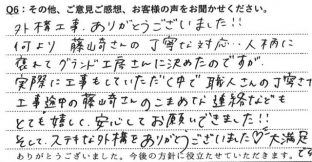 Q6：その他、ご意見ご感想、お客様の声をお聞かせください。
外構工事、ありがとうございました!!
何より藤山奇さんの丁寧な対応…人柄に
惹れてグランド工房さんに決めたのですが、
実際に工事もしていただく中で職人さんの丁寧さや
工事途中の藤山奇さんのこまめな連絡なども
とても嬉しく、安心してお願いできました!!
そして、ステキな外構をありがとうございました♡大満足
ありがとうございました。今後の方針に役立たせていただきます。です